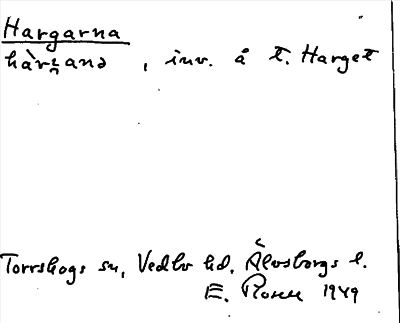 Hargarna
hàrgana, inv. å t. Harget
Torrskogs sn, Vedbo hd, Älvsborgs l.
E. Rosen 1949